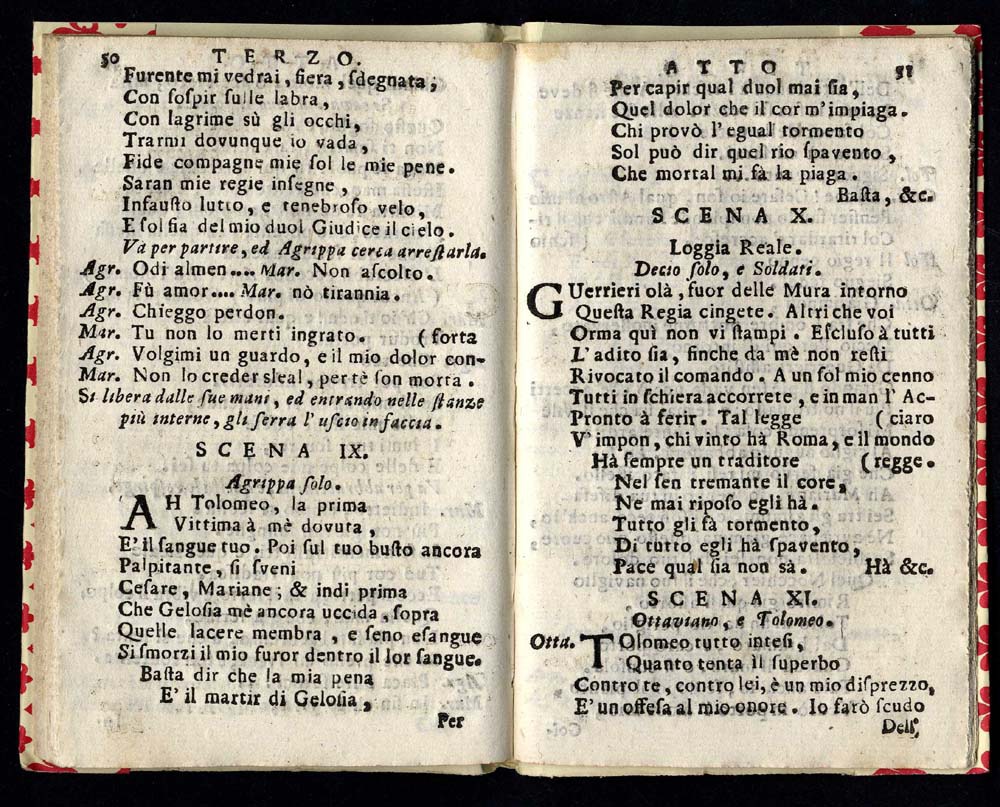 50 TERZO.
Furente mi vedrai, fiera, ſdegnata;
Con ſoſpir ſulle labra,
Con lagrime sù gli occhi,
Trarmi dovunque io vada,
Fide compagne mie ſol le mie pene.
Saran mie regie inſegne,
Infauſto lutto, e tenebroſo velo,
E ſol ſia del mio duol Giudice il cielo.
Và per partire, ed Agrippa cerca arreſtarla.
Agr. Odi almen.... Mar. Non aſcolto.
Agr. Fù amor.... Mar. nò tirannia.
Agr. Chieggo perdon.
Mar. Tu non lo merti ingrato. (forta
Agr. Volgimi un guardo, e il mio dolor con-
Mar. Non lo creder sleal, per tè ſon morta.
Si libera dalle ſue mani, ed entrando nelle ſtanze
più interne, gli ſerra l' uſcio in faccia.
SCENA IX.
Agrippa ſolo.
AH Tolomeo, la prima
Vittima à mè dovuta,
E' il ſangue tuo. Poi ſul tuo buſto ancora
Palpitante, ſi ſveni
Ceſare, Mariane; & indi prima
Che Geloſia mè ancora uccida, ſopra
Quelle lacere membra, e ſeno eſangue
Si ſmorzi il mio furor dentro il lor ſangue.
Baſta dir che la mia pena
E' il martir di Geloſia,
Per
ATTO 51
Per capir qual duol mai ſia,
Quel dolor che il cor m' impiaga.
Chi provò l' egual tormento
Sol può dir quel rio ſpavento,
Che mortal mi fà la piaga.
Baſta, &c.
SCENA X.
Loggia Reale.
Decio ſolo, e Soldati.
GUerrieri olà, fuor delle Mura intorno
Queſta Regia cingete. Altri che voi
Orma quì non vi ſtampi. Eſcluſo à tutti
L' adito ſia, finche da mè non reſti
Rivocato il comando. A un ſol mio cenno
Tutti in ſchiera accorrete, e in man l' Ac-
Pronto à ferir. Tal legge (ciaro
V' impon, chi vinto hà Roma, e il mondo
Hà ſempre un traditore (regge.
Nel ſen tremante il core,
Ne mai ripoſo egli hà.
Tutto gli fà tormento,
Di tutto egli hà ſpavento,
Pace qual ſia non sà. Hà &c.
SCENA XI.
Ottaviano, e Tolomeo.
Otta. TOlomeo tutto inteſi,
Quanto tenta il ſuperbo
Contro te, contro lei, è un mio diſprezzo,
E' un offeſa al mio onore. Io farò ſcudo
Dell'